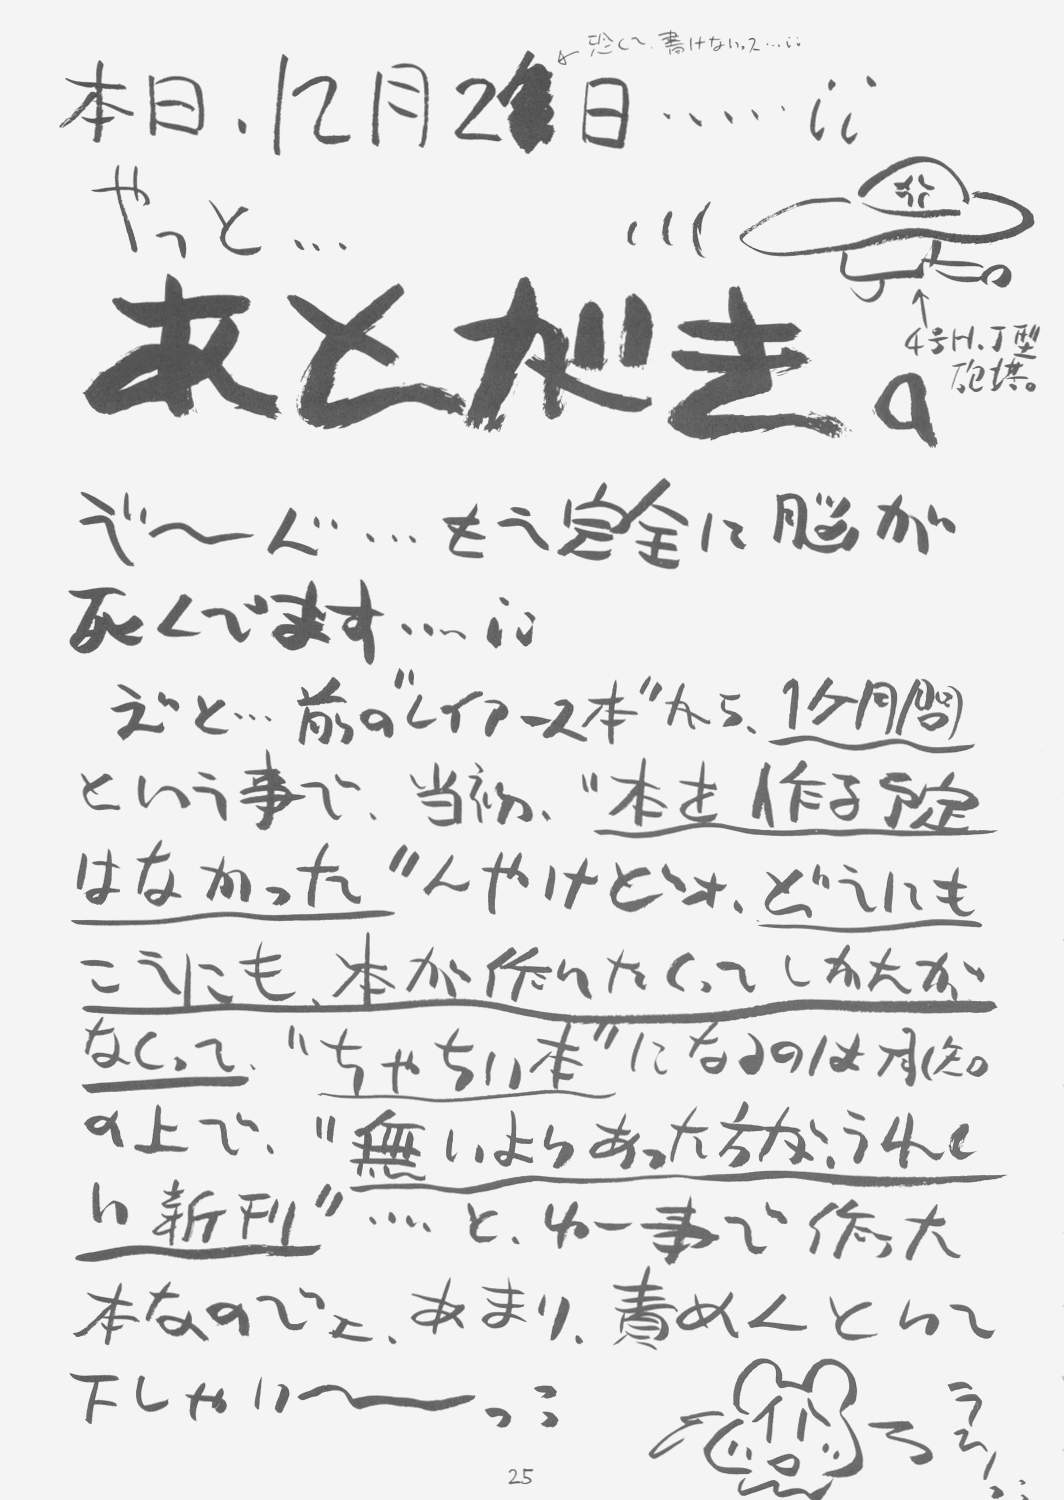 恐くて、書けないっス…;;
本日、12月2 日……;;
やっと…
4号H、J型
砲塔。
あとがき。
で〜ん…もう完全に脳が
死んでます…;;
えと…前の"レイアース本"から、1ケ月間
という事で、当初、"本を作る予定
はなかった"んやけどォ、どうにも
こうにも、本が作りたくってしかたが
なくって、"ちゃちい本"になるのは承知。
の上で、"無いよりあった方が、うれし
い新刊"…と、ゆー事で作った
本なのでェ、あまり、責めんといて
下しゃい〜〜っ;
25